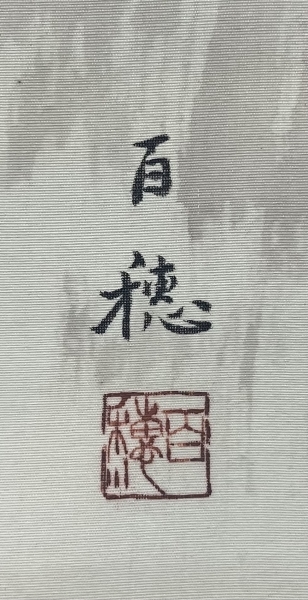 百
穂
百穂